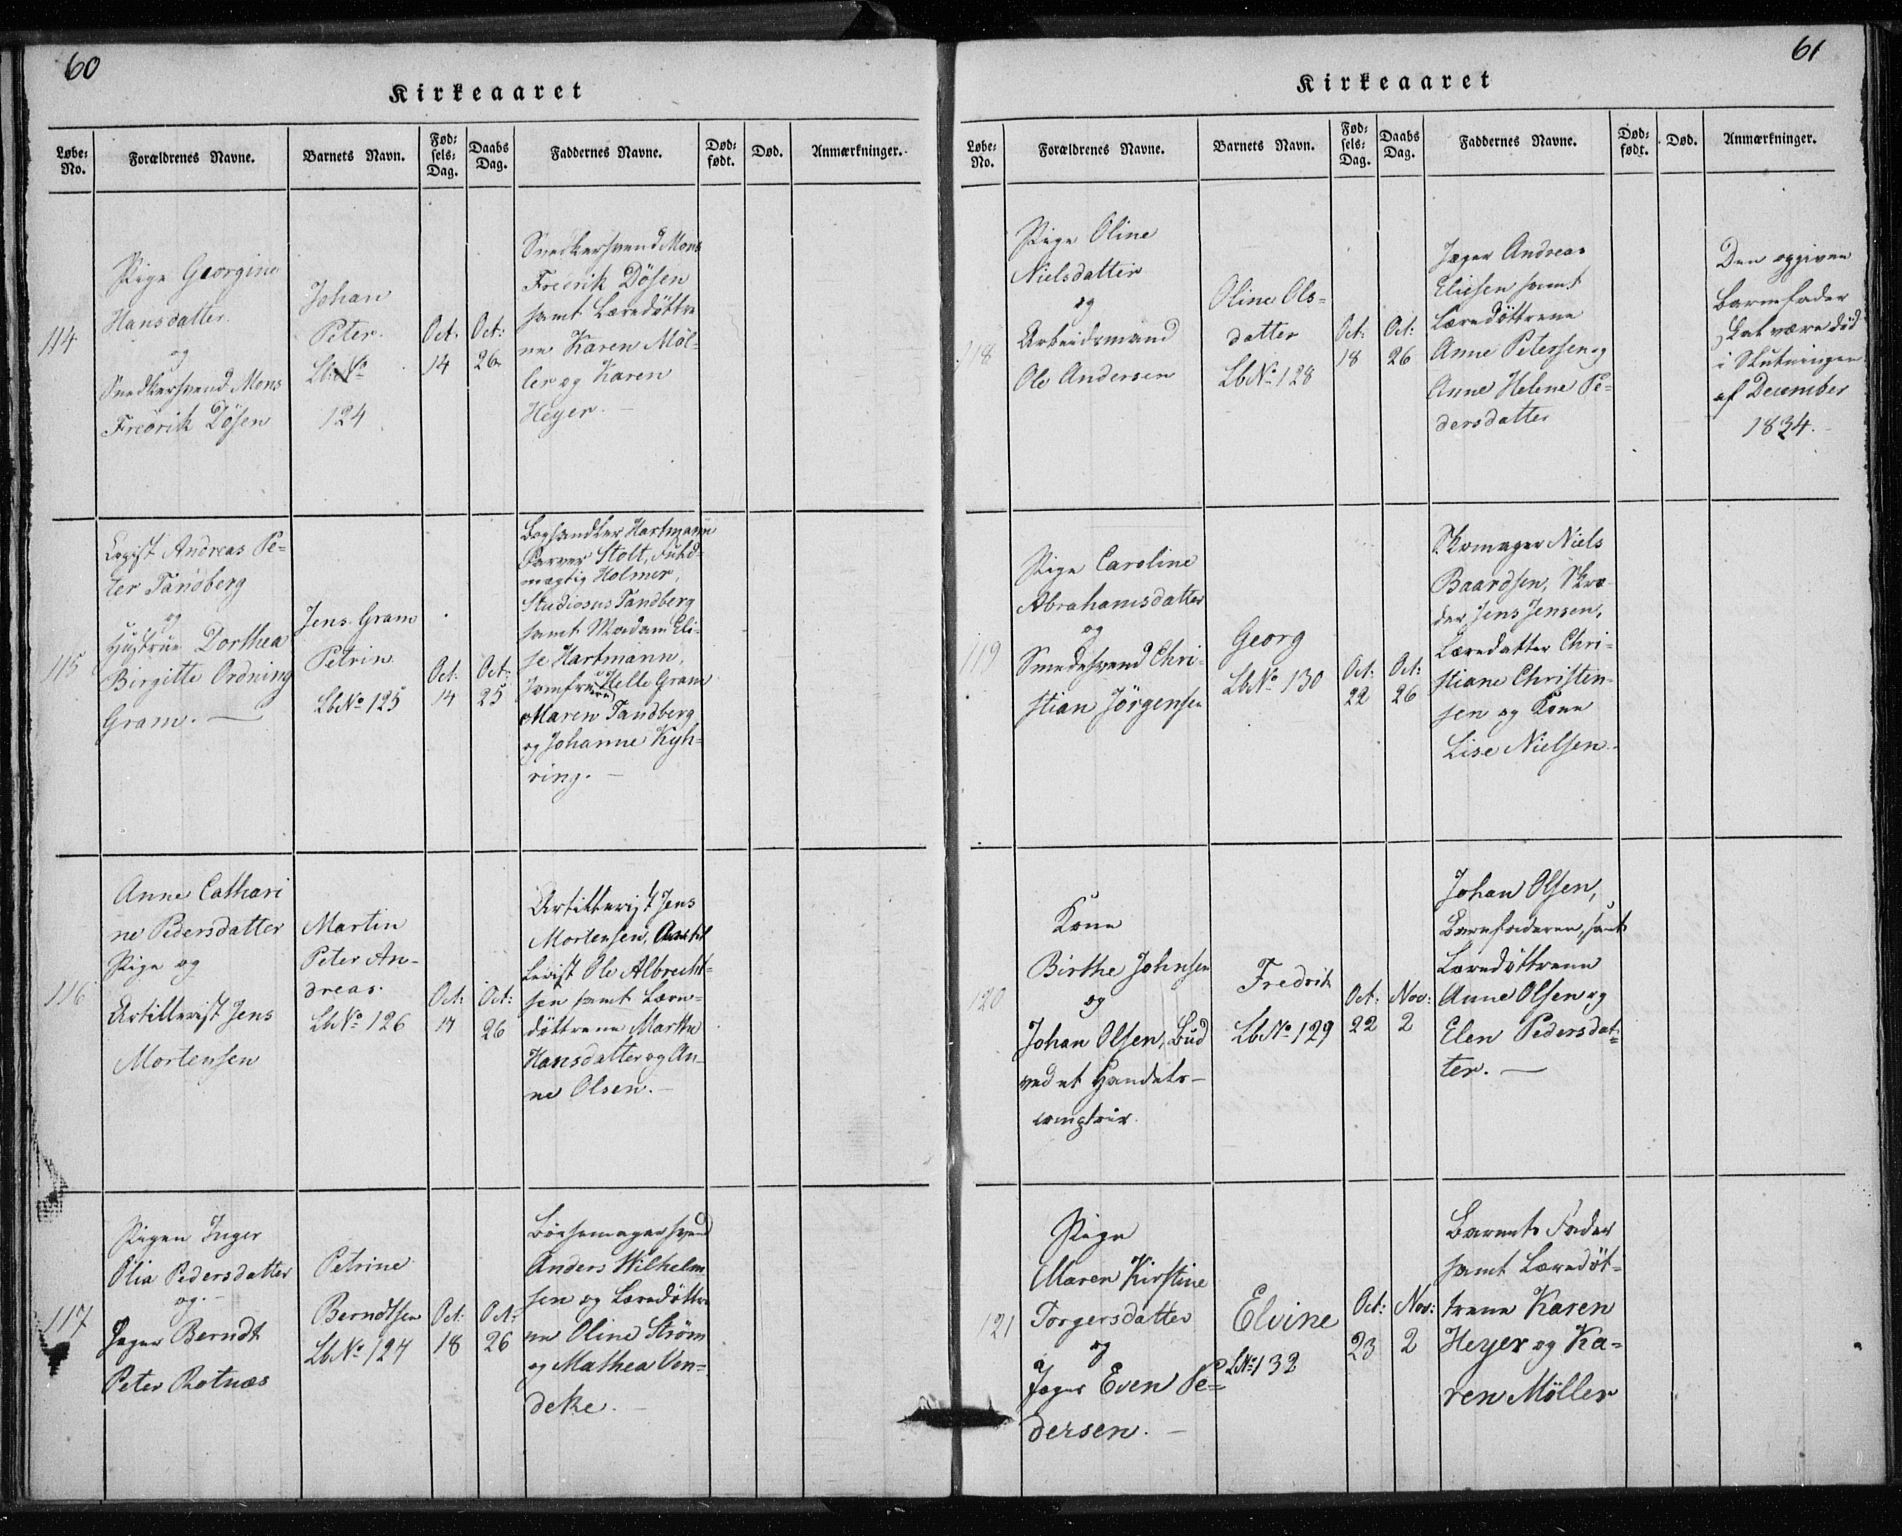 60
Kirkeaaret
Løbe-No.
Forældrenes Navne.
Barnets Navn.
Fød-sels-Dag.
Daabs Dag.
Faddernes Navne.
Død-født.
Død.
Anmærkninger.
114
Pige Georgine
Hansdatter
og
Snedkersvend Mons
Fredrik Dösen
Johan
Peter.
Lb. No
124
Oct.
14
Oct:
26
Snedkersvend Mons
Fredrik Dösen
samt Læredöttre
ne Karen Möl-
ler og Karen
Heyer. —
115
Andreas Pe-
ter Tandberg
og
Hustrue Dorthea
Birgitte Ordning
Gram. —
Jens Gram
Petrin
Lb No 125
Oct:
14
Oct:
25
Boghandler Hartmann
Farver Stolt, Fuld-
mægtig Holmer,
Studiosus Tandberg
samt Madam Eli-
se Hartmann,
Jomfruerne Helle Gram
Maren Tandberg
og Johanne Kyh-
ring. —
116
Anne Cathari
ne Pedersdatter
Pige og
Artillerist Jens
Mortensen
Martin
Peter An-
dreas.
Lb No 126
Oct:
17
Oct:
26
Artillerist Jens
Mortensen, Artil
lerist Ole Albrecht-
sen samt Lære-
döttrene Marthe
Hansdatter og An-
ne Olsen. —
117
Pigen Inger
Olia Pedersdatter
og. —
Jæger Berndt
Peter Rotnæs
Petrine
Berndtsen
Lb No 127
Oct:
18
Oct:
26
Bössemagersvend
Anders Wilhelm
sen og Læredöttre
ne Oline Ström
og Mathea Ven-
deke. —
61
Kirkeaaret
Løbe-No.
Forældrenes Navne.
Barnets Navn.
Fød-sels-Dag.
Daabs Dag.
Faddernes Navne.
Død-født.
Død.
Anmærkninger.
118
Pige Oline
Nielsdatter
og
Arbeidsmand
Ole Andersen
Oline Ols-
datter
Lb No 128
Oct:
18
Oct:
26
Jæger Andreas
Eliesen samt
Læredöttrene
Anne Petersen og
Anne Helene Pe-
dersdatter
Den opgivne
Barnefader
skal være död
i Slutningen
af December
1834.
119
Pige Caroline
Abrahamsdatter
og
Smedesvend Chri-
stian Jörgensen
Georg
Lb No 130
Oct:
22
Oct:
26
Skomager Niels
Baardsen, Skræ-
der Jens Jensen,
Læredatter Chri-
stiane Christen-
sen og Kone
Lise Nielsen.
120
Kone
Birthe Johnsen
og
Johan Olsen, Bud
ved et Handels-
comptoir.
Fredrik
Lb No 129
Oct:
22
Nov:
2
Johan Olsen,
Barnefaderen, samt
Læredöttrene
Anne Olsen og
Elen Pedersdat-
ter. —
121
Pige
Maren Kirstine
Torgersdatter
og
Jæger Even Pe-
dersen. —
Elvine
L No 132
Oct:
23
Nov:
2
Barnets Fader
samt Læredöt-
trene Karen
Heyer og Ka-
ren Möller